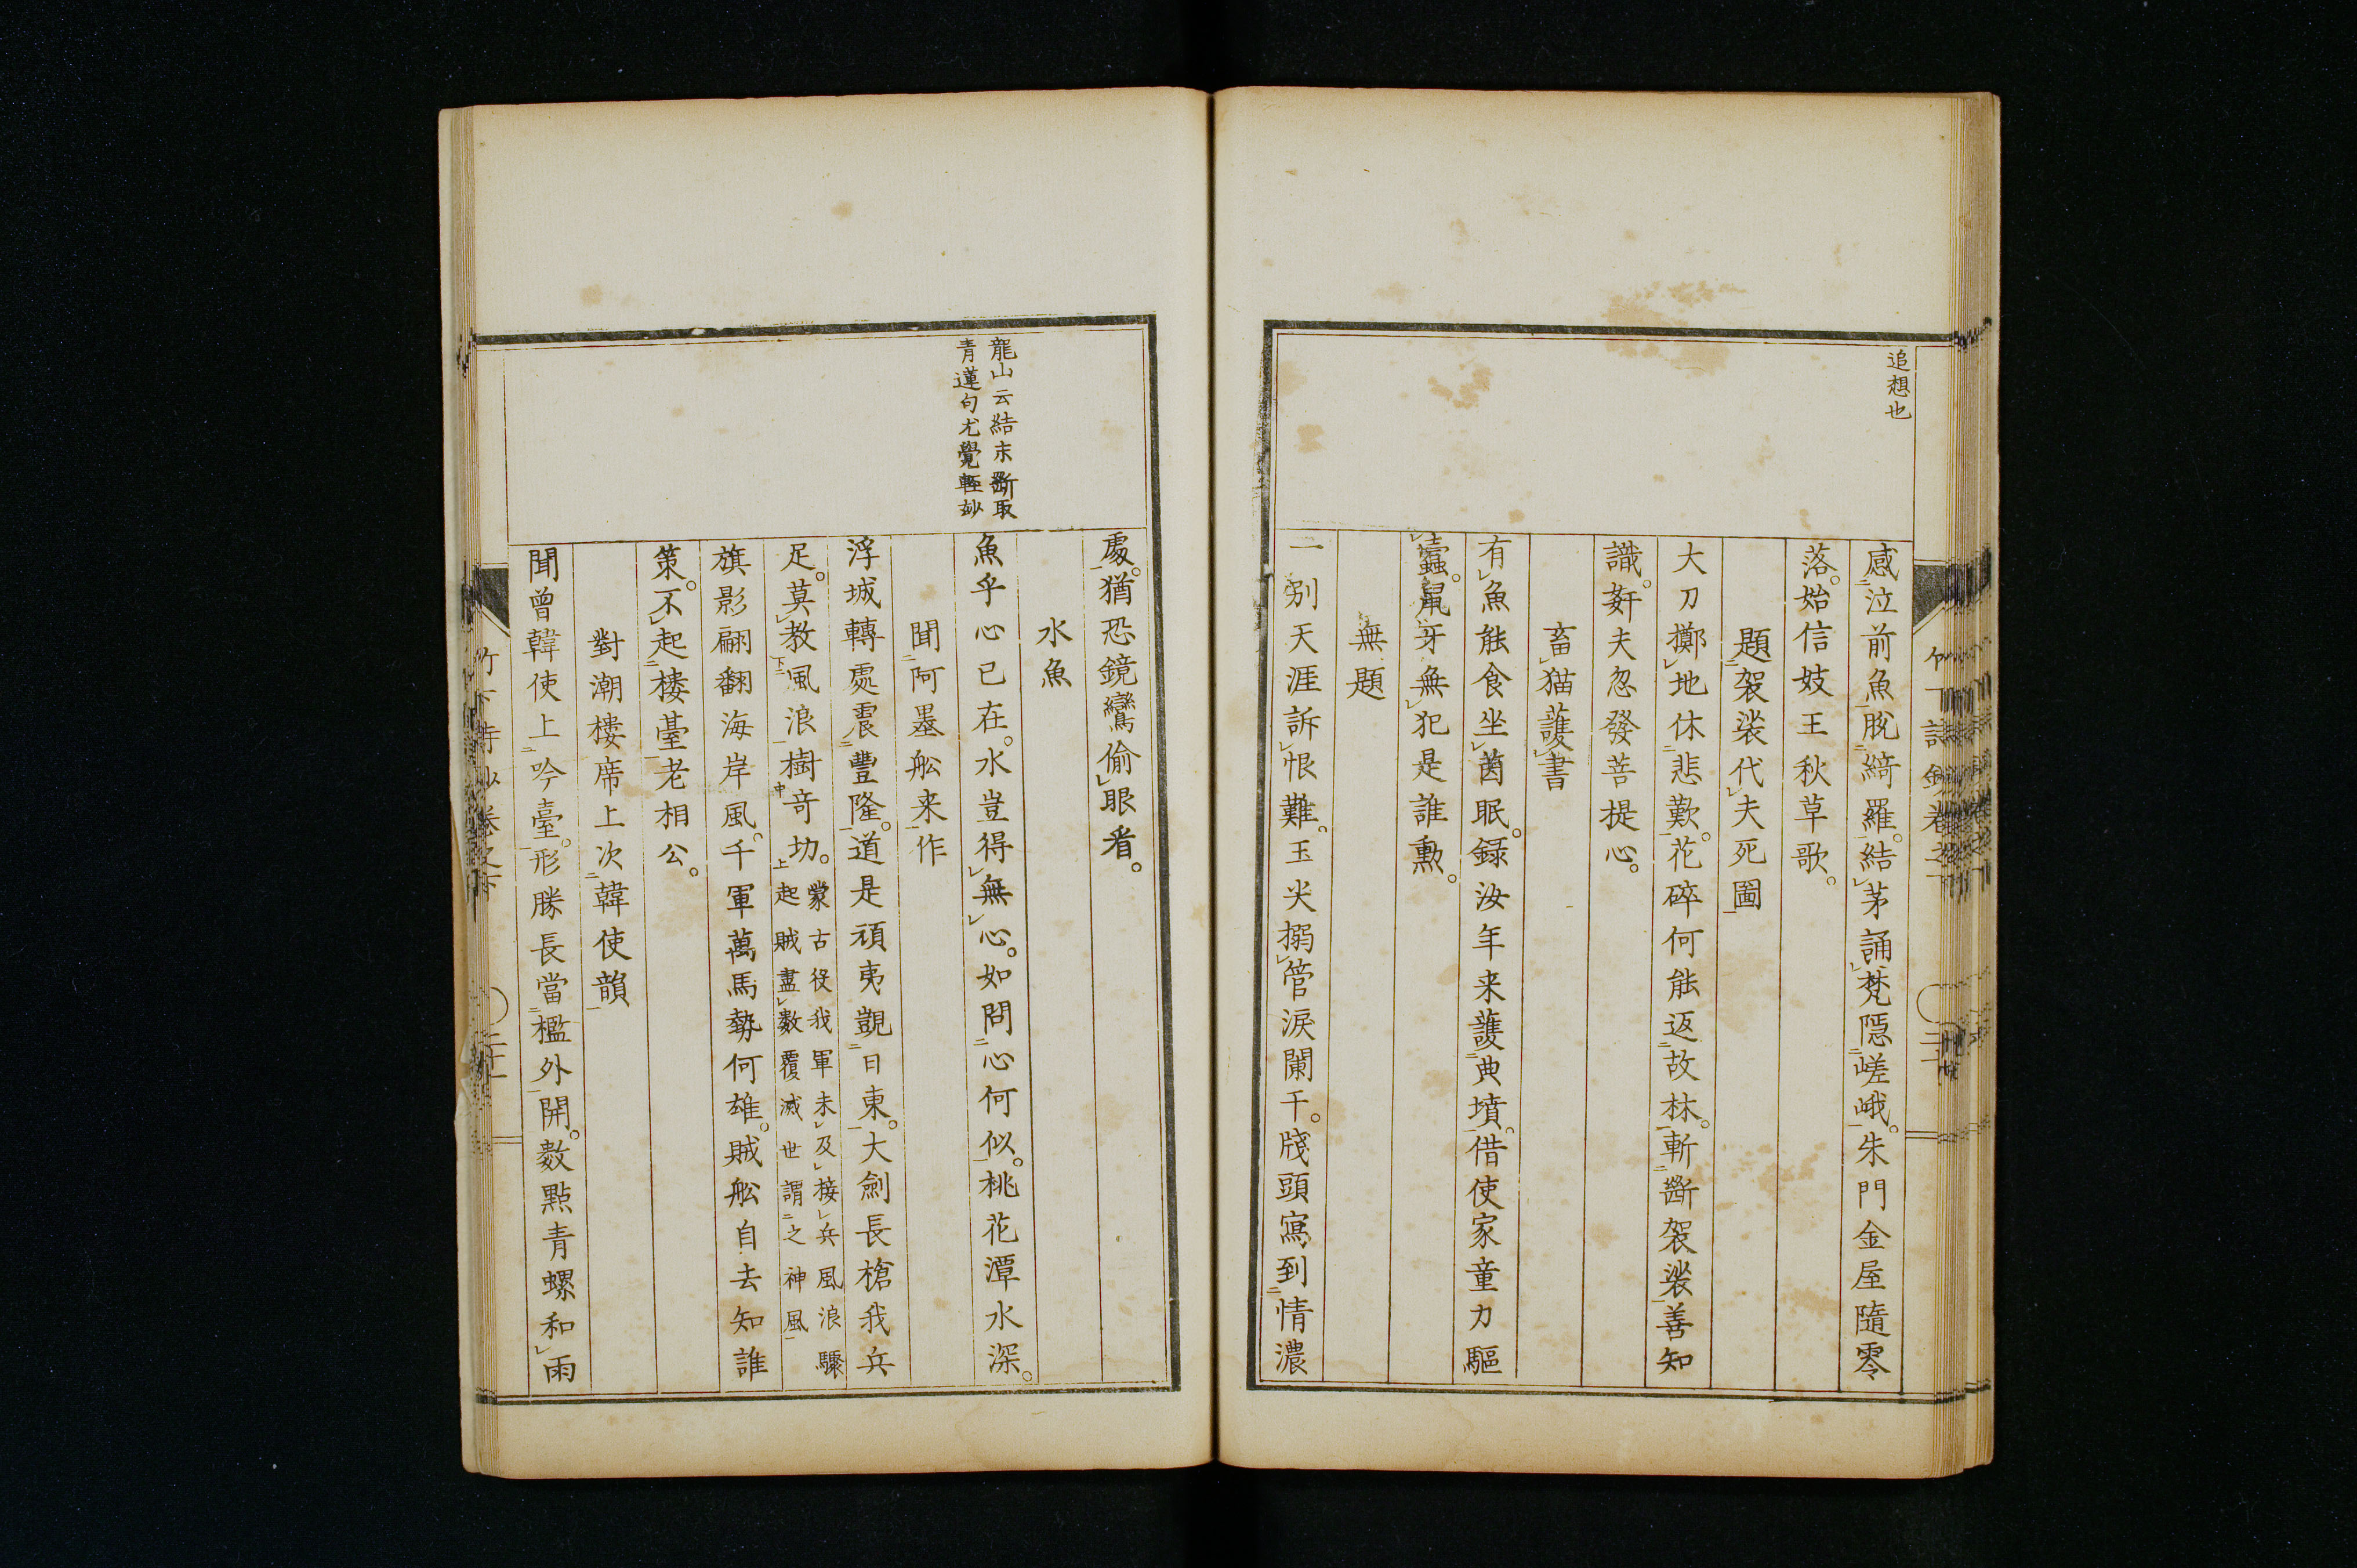 追想也
感泣前魚脫綺羅。結茅誦梵隱嵯峨。朱門金屋隨零
落。始信妓王秋草歌。
題袈裟代夫死圖
大刀擲地休悲歎。花碎何能返故林。斬斷袈裟善知
識。姧夫忽發菩提心。
畜猫護書
有魚能食坐茵眠。録汝年来護典墳。借使家童力驅
蠹。鼠牙無犯是誰勲。
無題
一別天涯訴恨難。玉尖搦管淚闌干。牋頭寫到情濃
龍山云結末斷取
青蓮句尤覺輕妙
處。猶恐鏡鸞偷眼看。
水魚
魚乎心已在。水豈得無心。如問心何似。桃花潭水深。
聞阿墨舩来作
浮城轉處震豐隆。道是頑夷覬日東。大劍長槍我兵
足。莫教風浪樹竒功。蒙古役我軍未及接兵風浪驟
起賊盡數覆滅世謂之神風
旗影翩翻海岸風。千軍萬馬勢何雄。賊舩自去知誰
策。不起樓臺老相公。
對潮樓席上次韓使韻
聞曾韓使上吟臺。形勝長當檻外開。數點青螺和雨